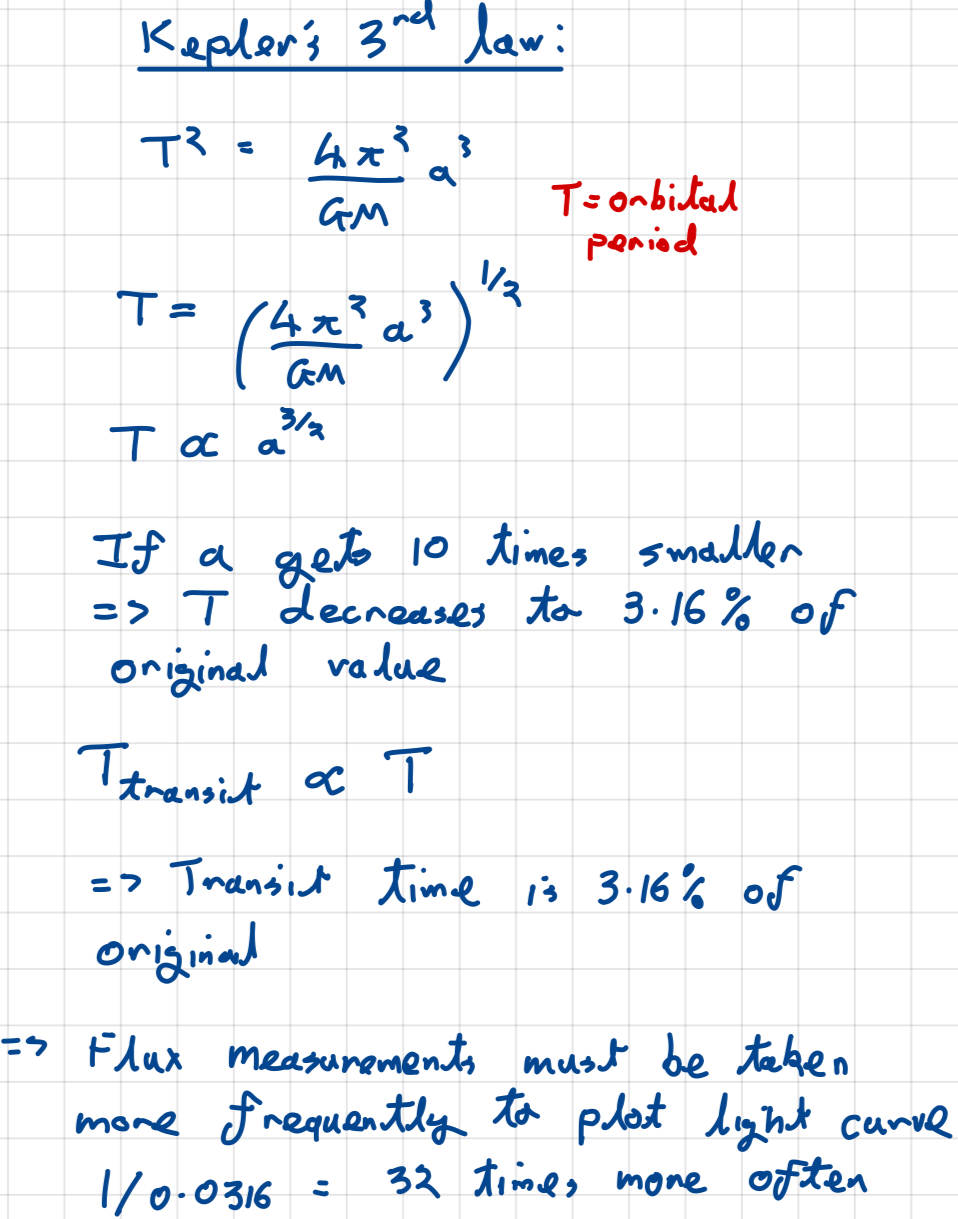 Kepler's 3rd law:
T² = 4π²/GM a³
T = orbital
period
T = (4π²/GM a³)^1/2
T ∝ a^3/2
If a gets 10 times smaller
=> T decreases to 3.16% of
original value
T_transit ∝ T
=> Transit time is 3.16% of
original
=> Flux measurements must be taken
more frequently to plot light curve
1/0.0316 = 32 times more often